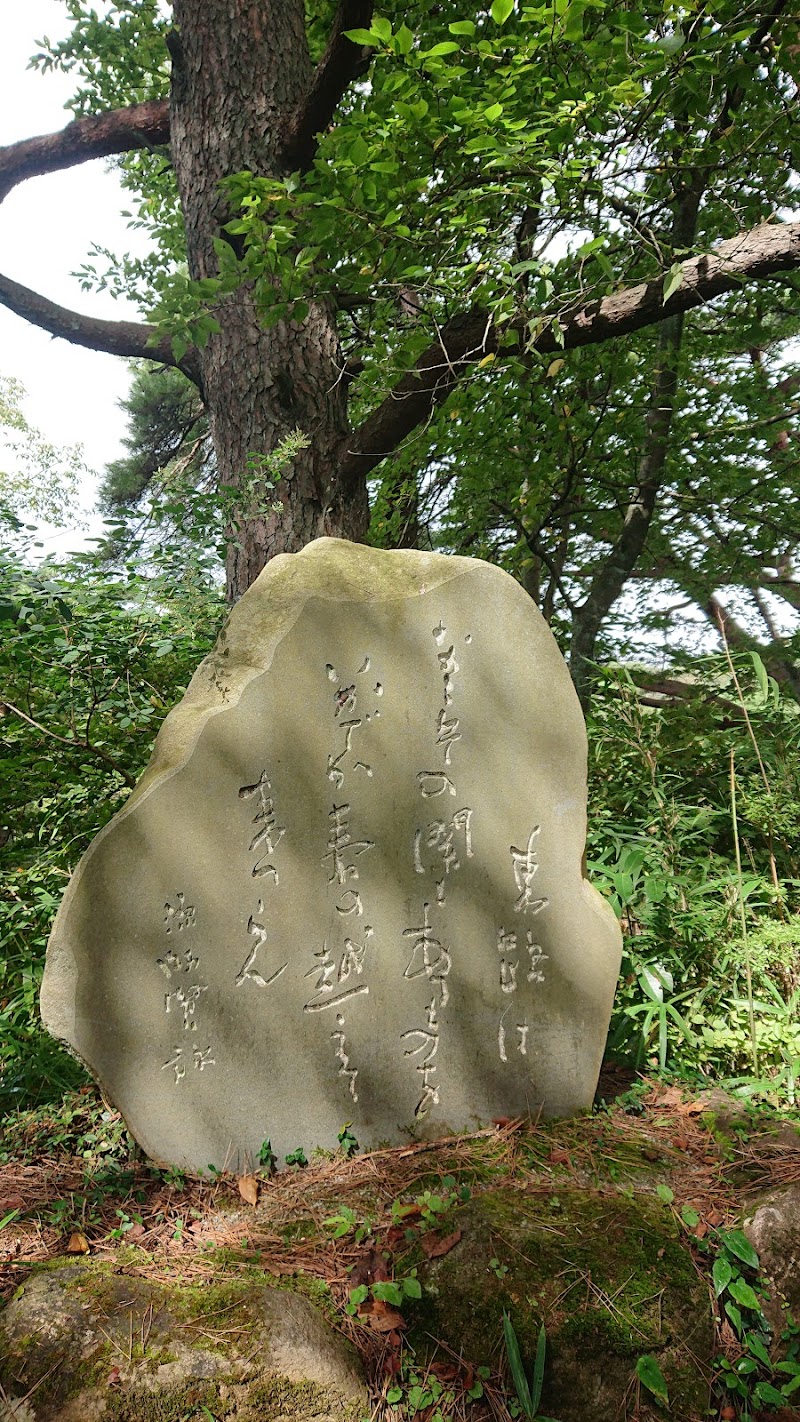 東路は
なこその関もあるものを
いかでか春の越えて
来つらん
源師賢